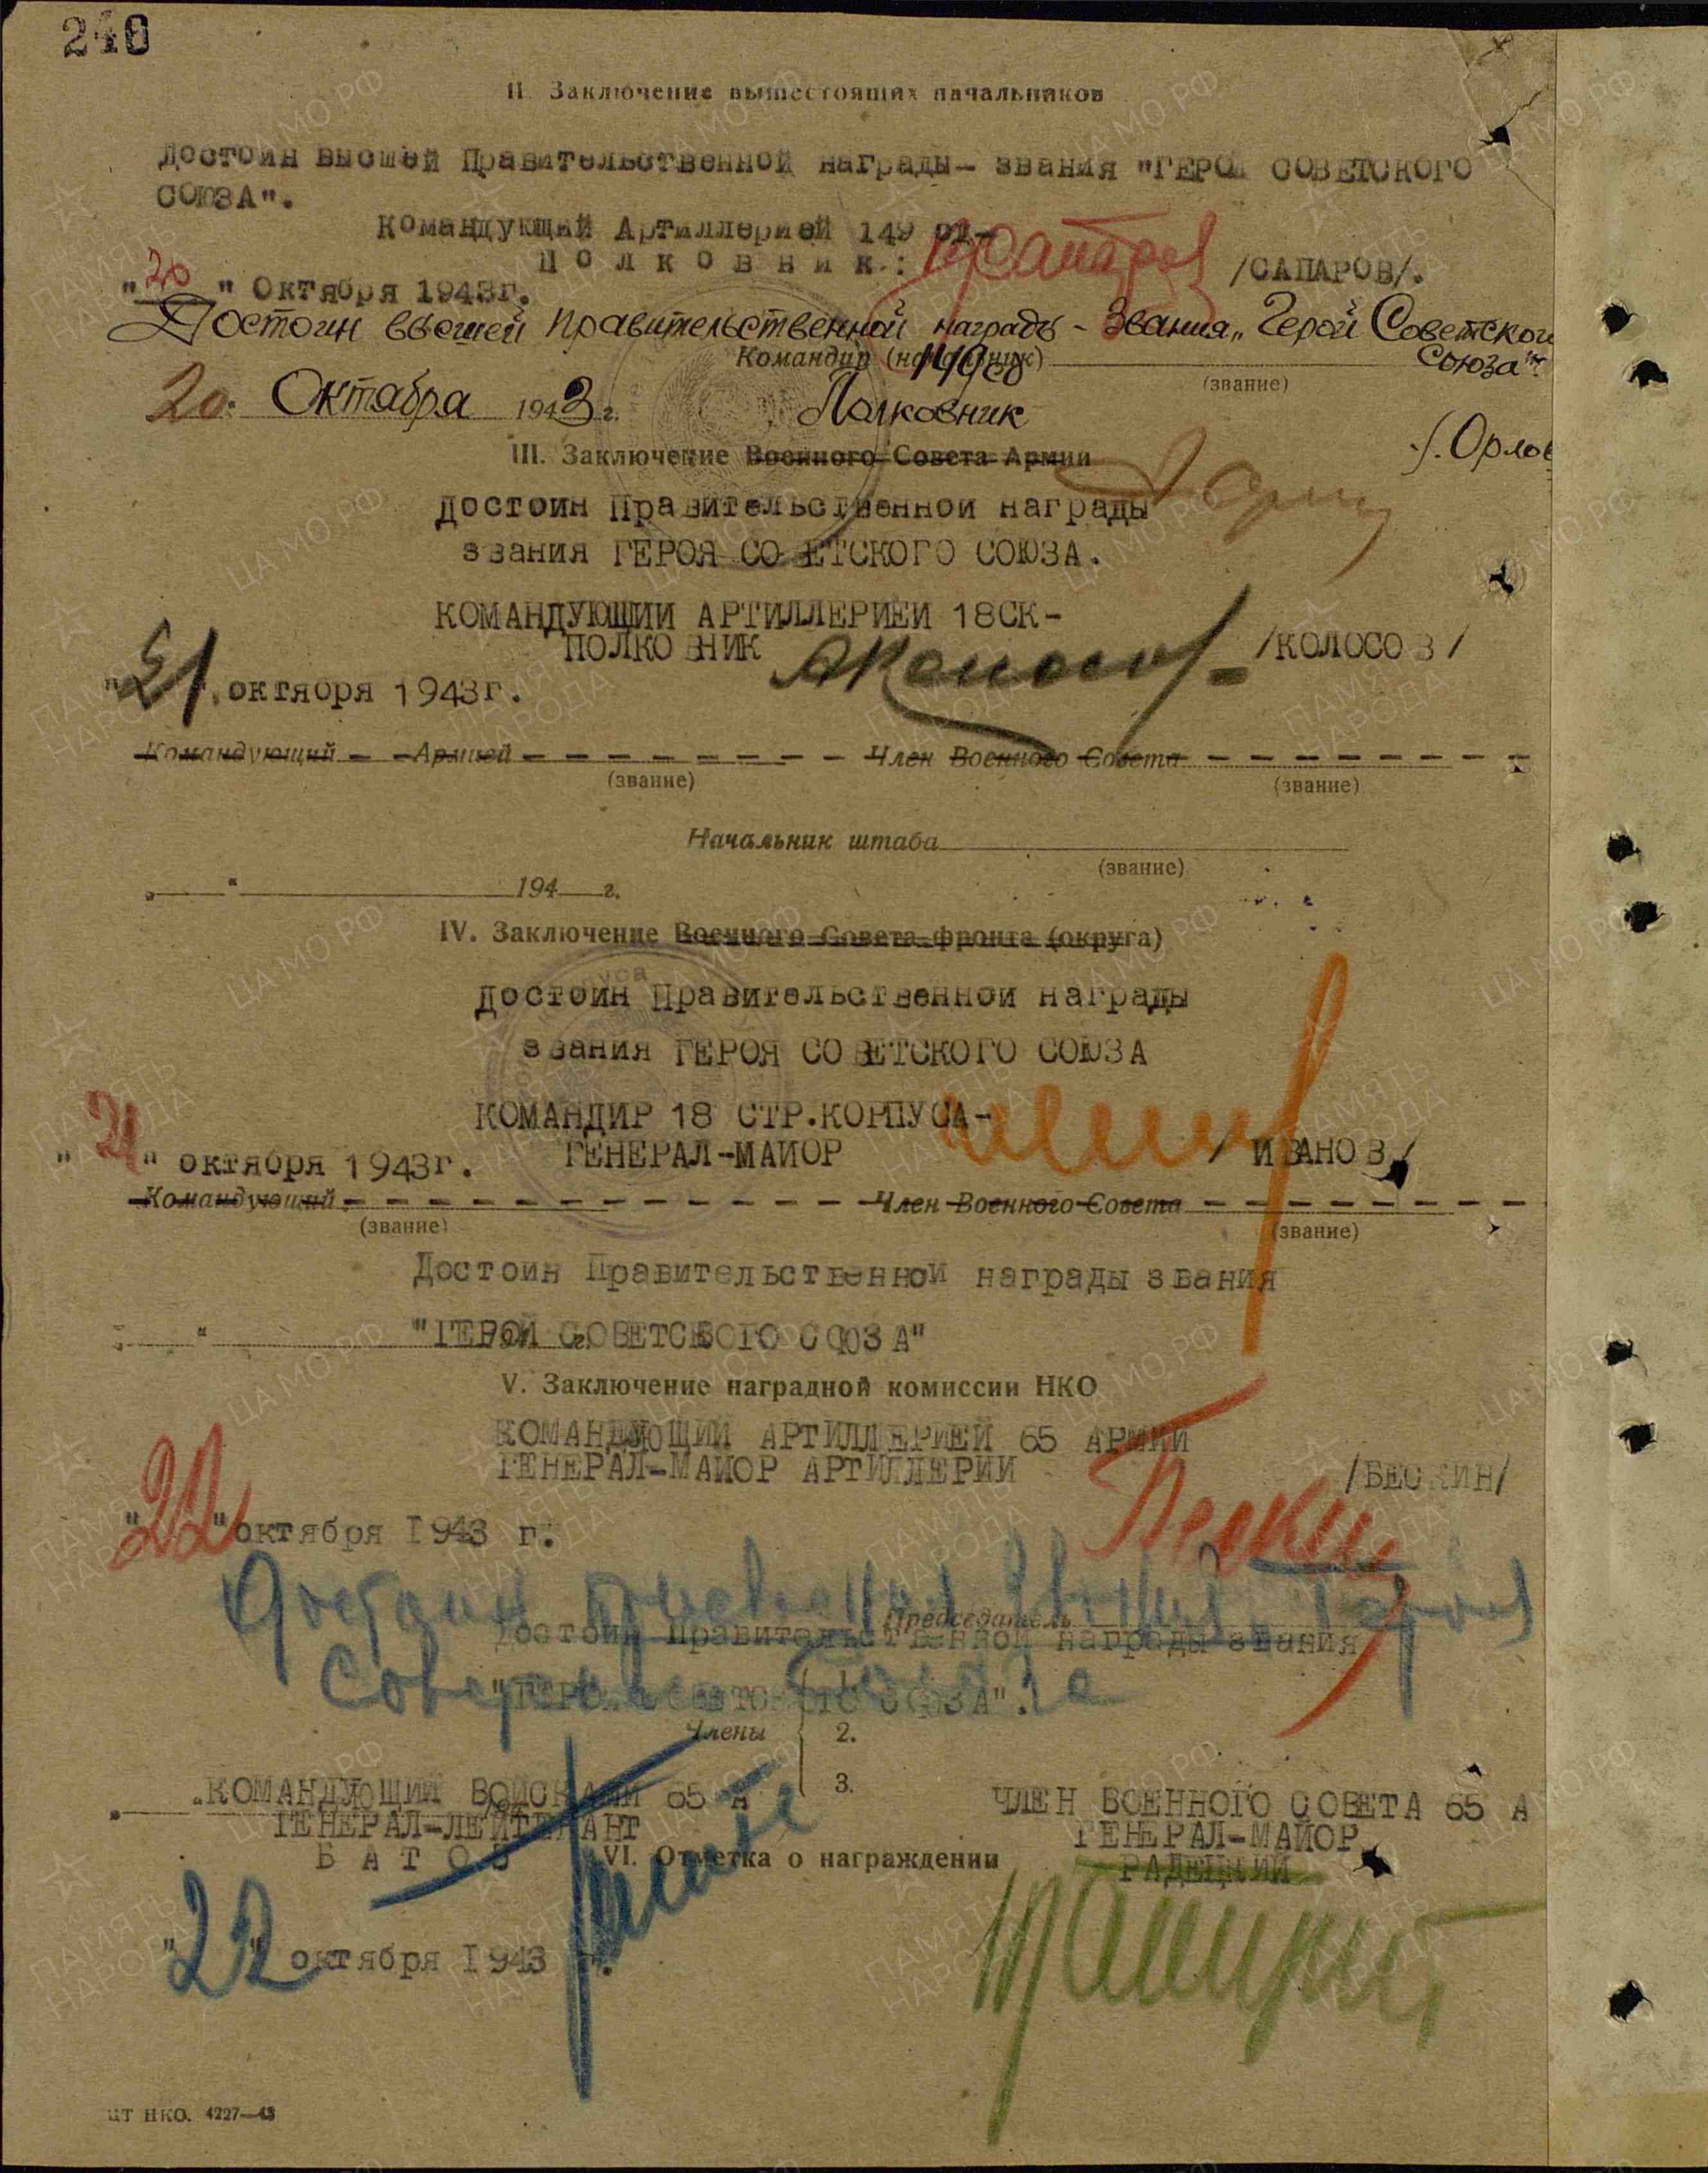 246
II. Заключение вышестоящих начальников
Достоин высшей Правительственной награды- звания "ГЕРОЙ СОВЕТСКОГО
СОЮЗА".
Командующий Артиллерией 149 сд-
Полковник: /САПАРОВ/.
"20" Октября 1943г.
Достоин высшей Правительственной награды - Звания „Герой Советского
Союза".
Командир (начальник)
(звание)
20 Октября 1943 г. Полковник
/.Орлов
III. Заключение Военного Совета Армии
Достоин Правительственной награды
звания ГЕРОЯ СОВЕТСКОГО СОЮЗА.
КОМАНДУЮЩИЙ АРТИЛЛЕРИЕЙ 18СК-
ПОЛКОВНИК /КОЛОСОВ/
"21" октября 1943г.
Командующий Армией Член Военного Совета
(звание) (звание)
Начальник штаба
(звание)
„ " 194 г.
IV. Заключение Военного Совета фронта (округа)
Достоин Правительственной награды
звания ГЕРОЯ СОВЕТСКОГО СОЮЗА
КОМАНДИР 18 СТР.КОРПУСА-
ГЕНЕРАЛ-МАЙОР /ИВАНОВ/
"21" октября 1943г.
Командующий Член Военного Совета
(звание) (звание)
Достоин Правительственной награды звания
"ГЕРОЙ СОВЕТСКОГО СОЮЗА"
V. Заключение наградной комиссии НКО
КОМАНДУЮЩИЙ АРТИЛЛЕРИЕЙ 65 АРМИИ
ГЕНЕРАЛ-МАЙОР АРТИЛЛЕРИИ /БЕСКИН/
"22" октября 1943 г.
Достоин присвоения звания Героя
Председатель
Достоин Правительственной награды звания
Советского Союза
"ГЕРОЙ СОВЕТСКОГО СОЮЗА".
Члены
2.
3.
КОМАНДУЮЩИЙ ВОЙСКАМИ 65 А ЧЛЕН ВОЕННОГО СОВЕТА 65 А
ГЕНЕРАЛ-ЛЕЙТЕНАНТ ГЕНЕРАЛ-МАЙОР
БАТОВ РАДЕЦКИЙ
VI. Отметка о награждении
"22" октября 1943 г.
ЦТ НКО. 4227—43